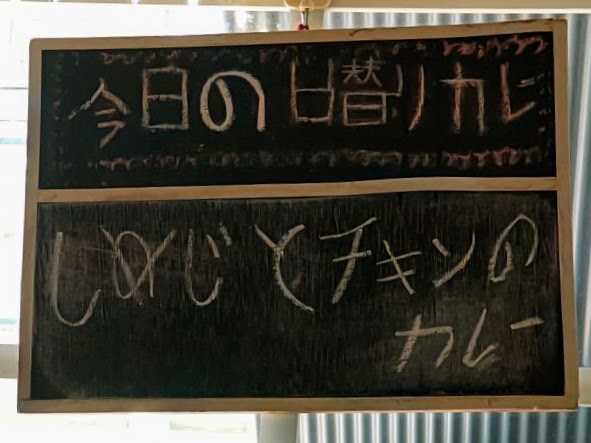 今日の日替りカレー
しめじとチキンの
カレー